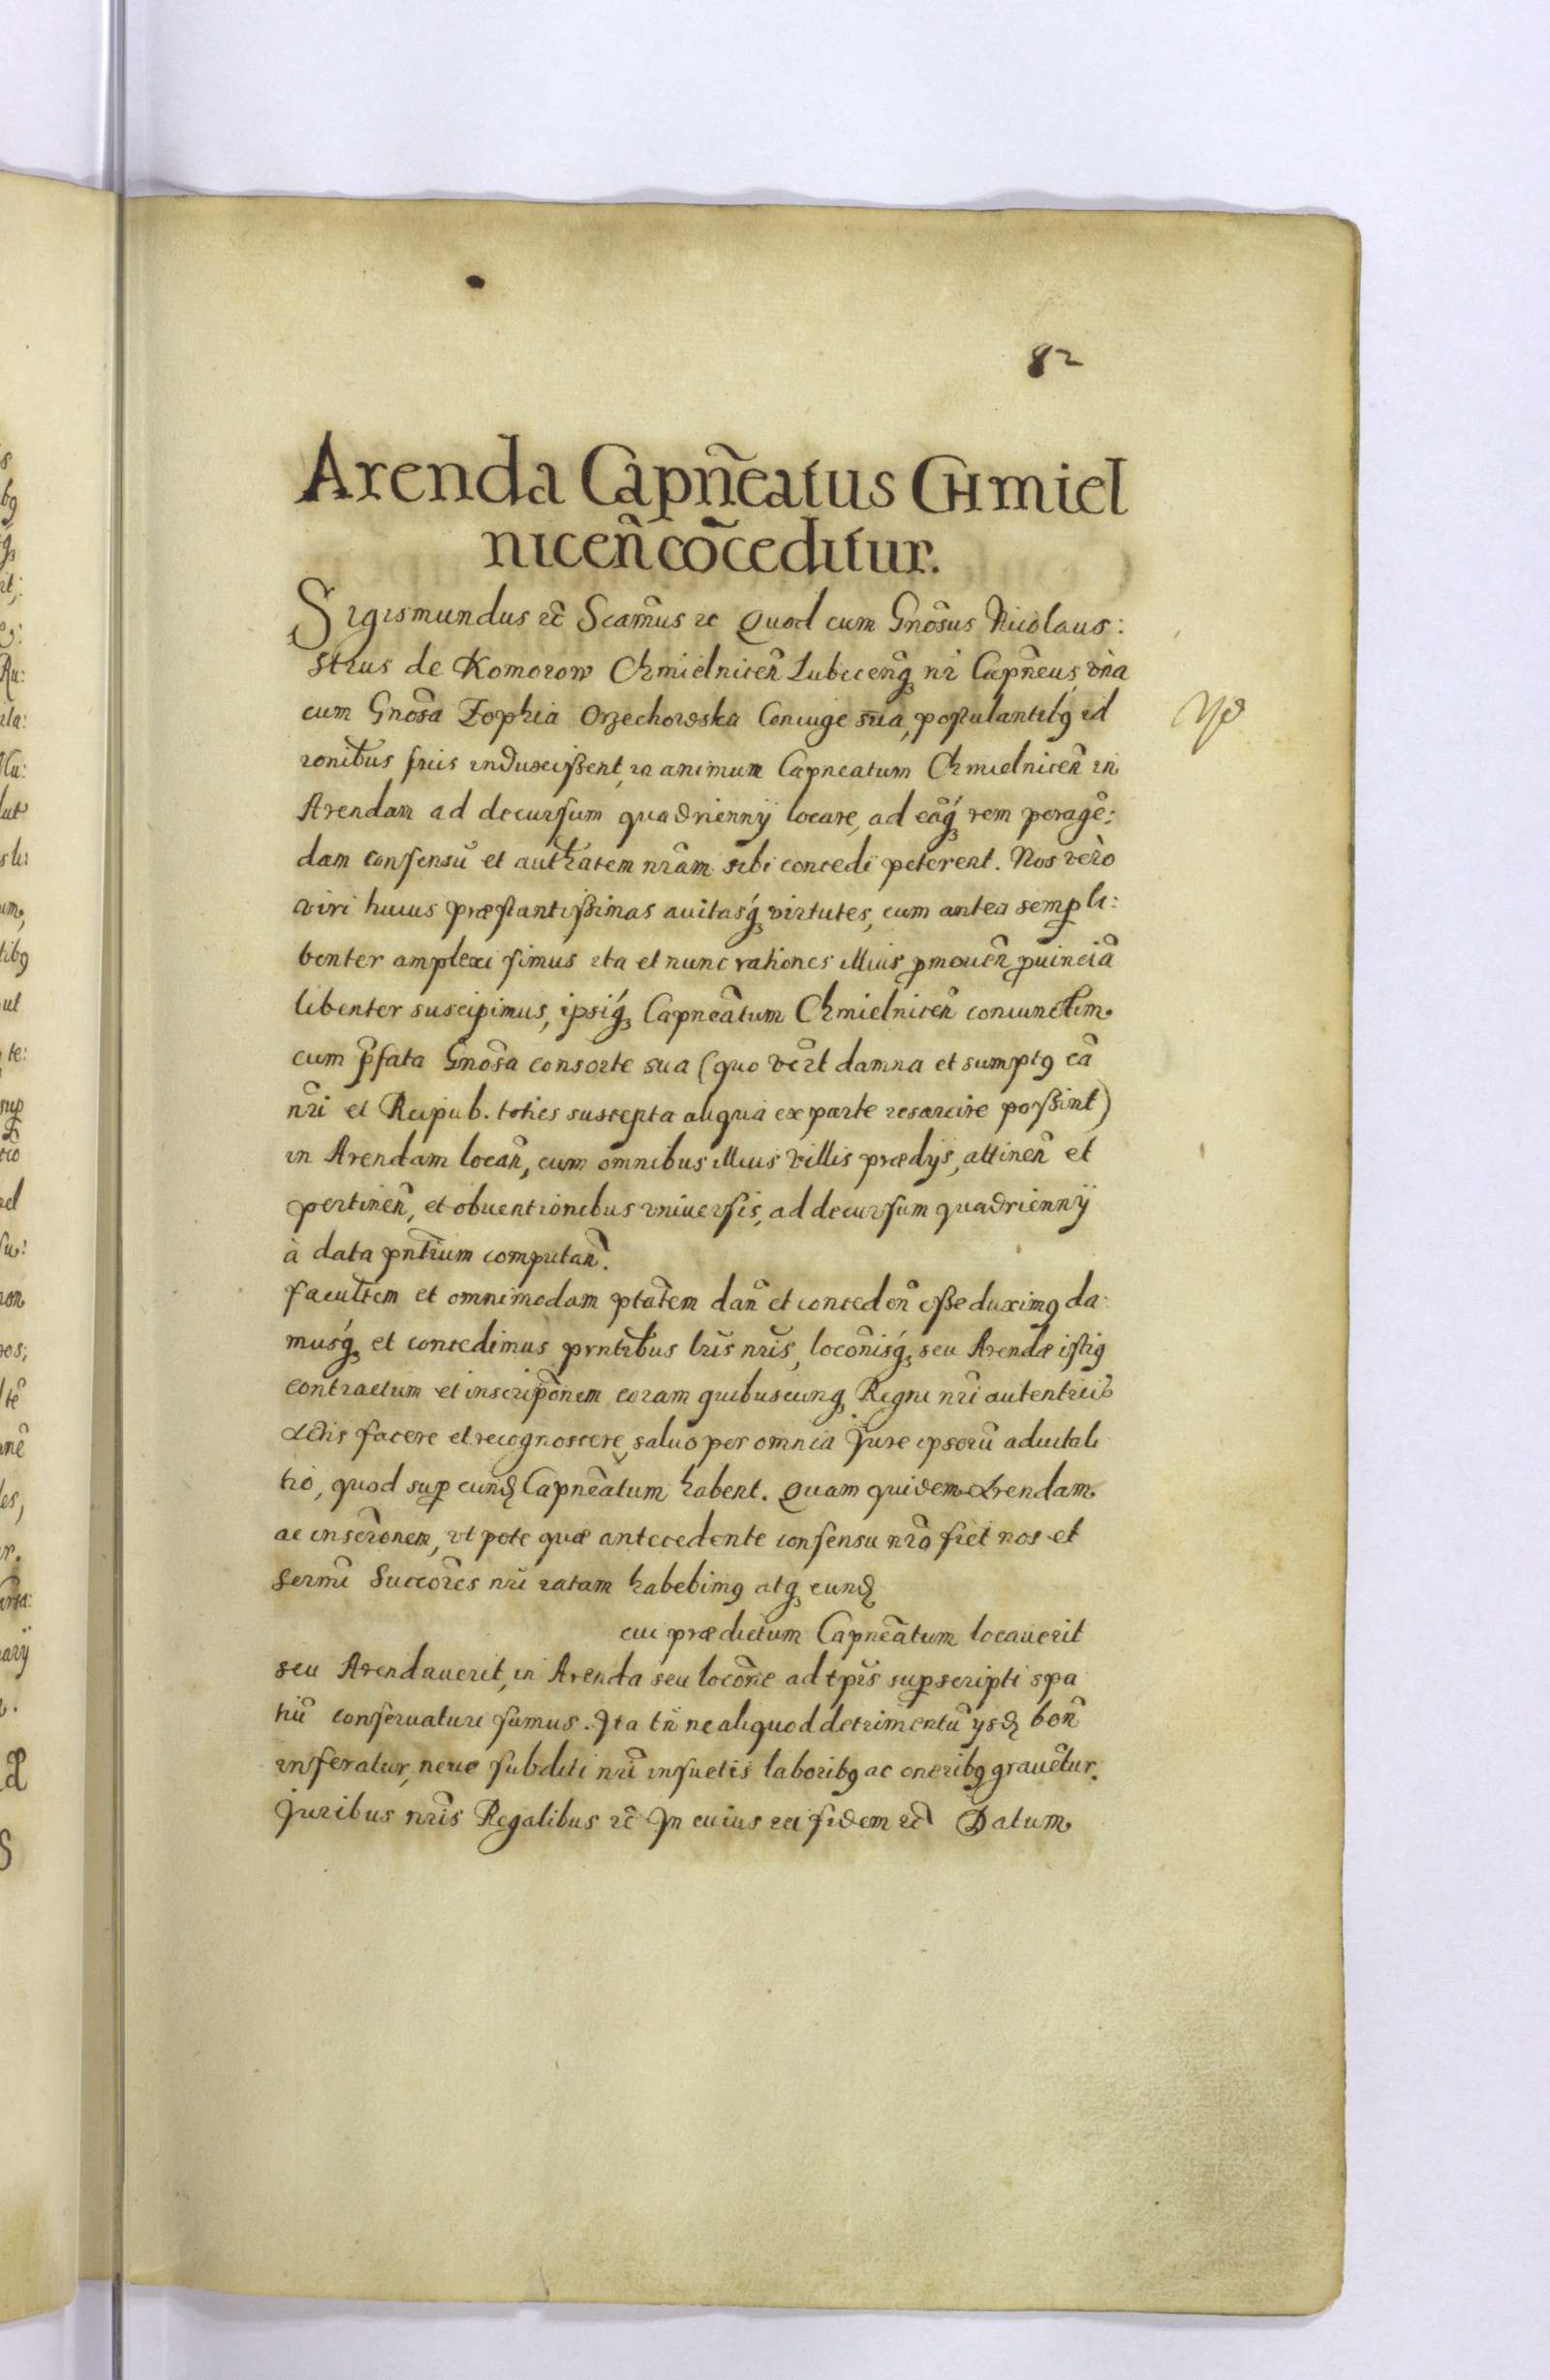 82
Arenda Capñeatus CHmiel
niceñ cõceditur.
Sigismundus ẽc Scamus ec Quod cum Gnosus Nicolaus:
Strus de Komorow Chmielniceñ Lubicenq nr̃i Capñeus vna
cum Gnosa Zophia Orzechowska Coniuge sua, postulantibq id
ronibus suis induxissent, in animum Capneatum Chmielniceñ in
Arendam ad decursum quadriennÿ locare, ad eãq rem peragẽ:
dam consensũ et authatem nr̃am sibi concedi peterent. Nos vero
viri huius præstantissimas auitasq virtutes, cum antea semp li:
benter amplexi simus ita et nunc rationes illius pmoueñ puinciã
libenter suscipimus, ipsiq Capneatum Chmielniceñ coniunctim
cum p̃fata Gnosa consorte sua (quo vert damna et sumptq cã
nr̃i et Reipub. toties suscepta aliqua ex parte resarcire possint)
in Arendam locañ, cum omnibus illius villis prædijs, attineñ et
pertineñ, et obuentionibus vniuersis, ad decursum quadriennÿ
à data pntium computañ.
facultem et omnimodam ptatem dañ et concedeñ esse duximq da:
musq et concedimus pntibus lr̃is nr̃is, locõnisq seu Arendæ istiq
contractum et inscripõnem coram quibuscunq Regni nr̃i autenticis
Actis facere et recognoscere, saluo per omnia Jure ipsorũ aduitali
tio, quod sup eund Capneatum habent. Quam quidem Arendam
ac inscronem, vt pote quæ antecedente consensu nr̃o fiet nos et
Sermi Succores nr̃i ratam habebimq atq eund
cui prædictum Capneatum locauerit
seu Arendauerit, in Arenda seu locõne ad tpis supscripti spa
tiũ conseruaturi sumus. Ita tñ ne aliquod detrimentũ ijsd boñ
inferatur, neue subditi nr̃i insuetis laboribq ac oneribq grauẽtur.
Juribus nr̃is Regalibus ẽc In cuius rei fidem ẽc Datum